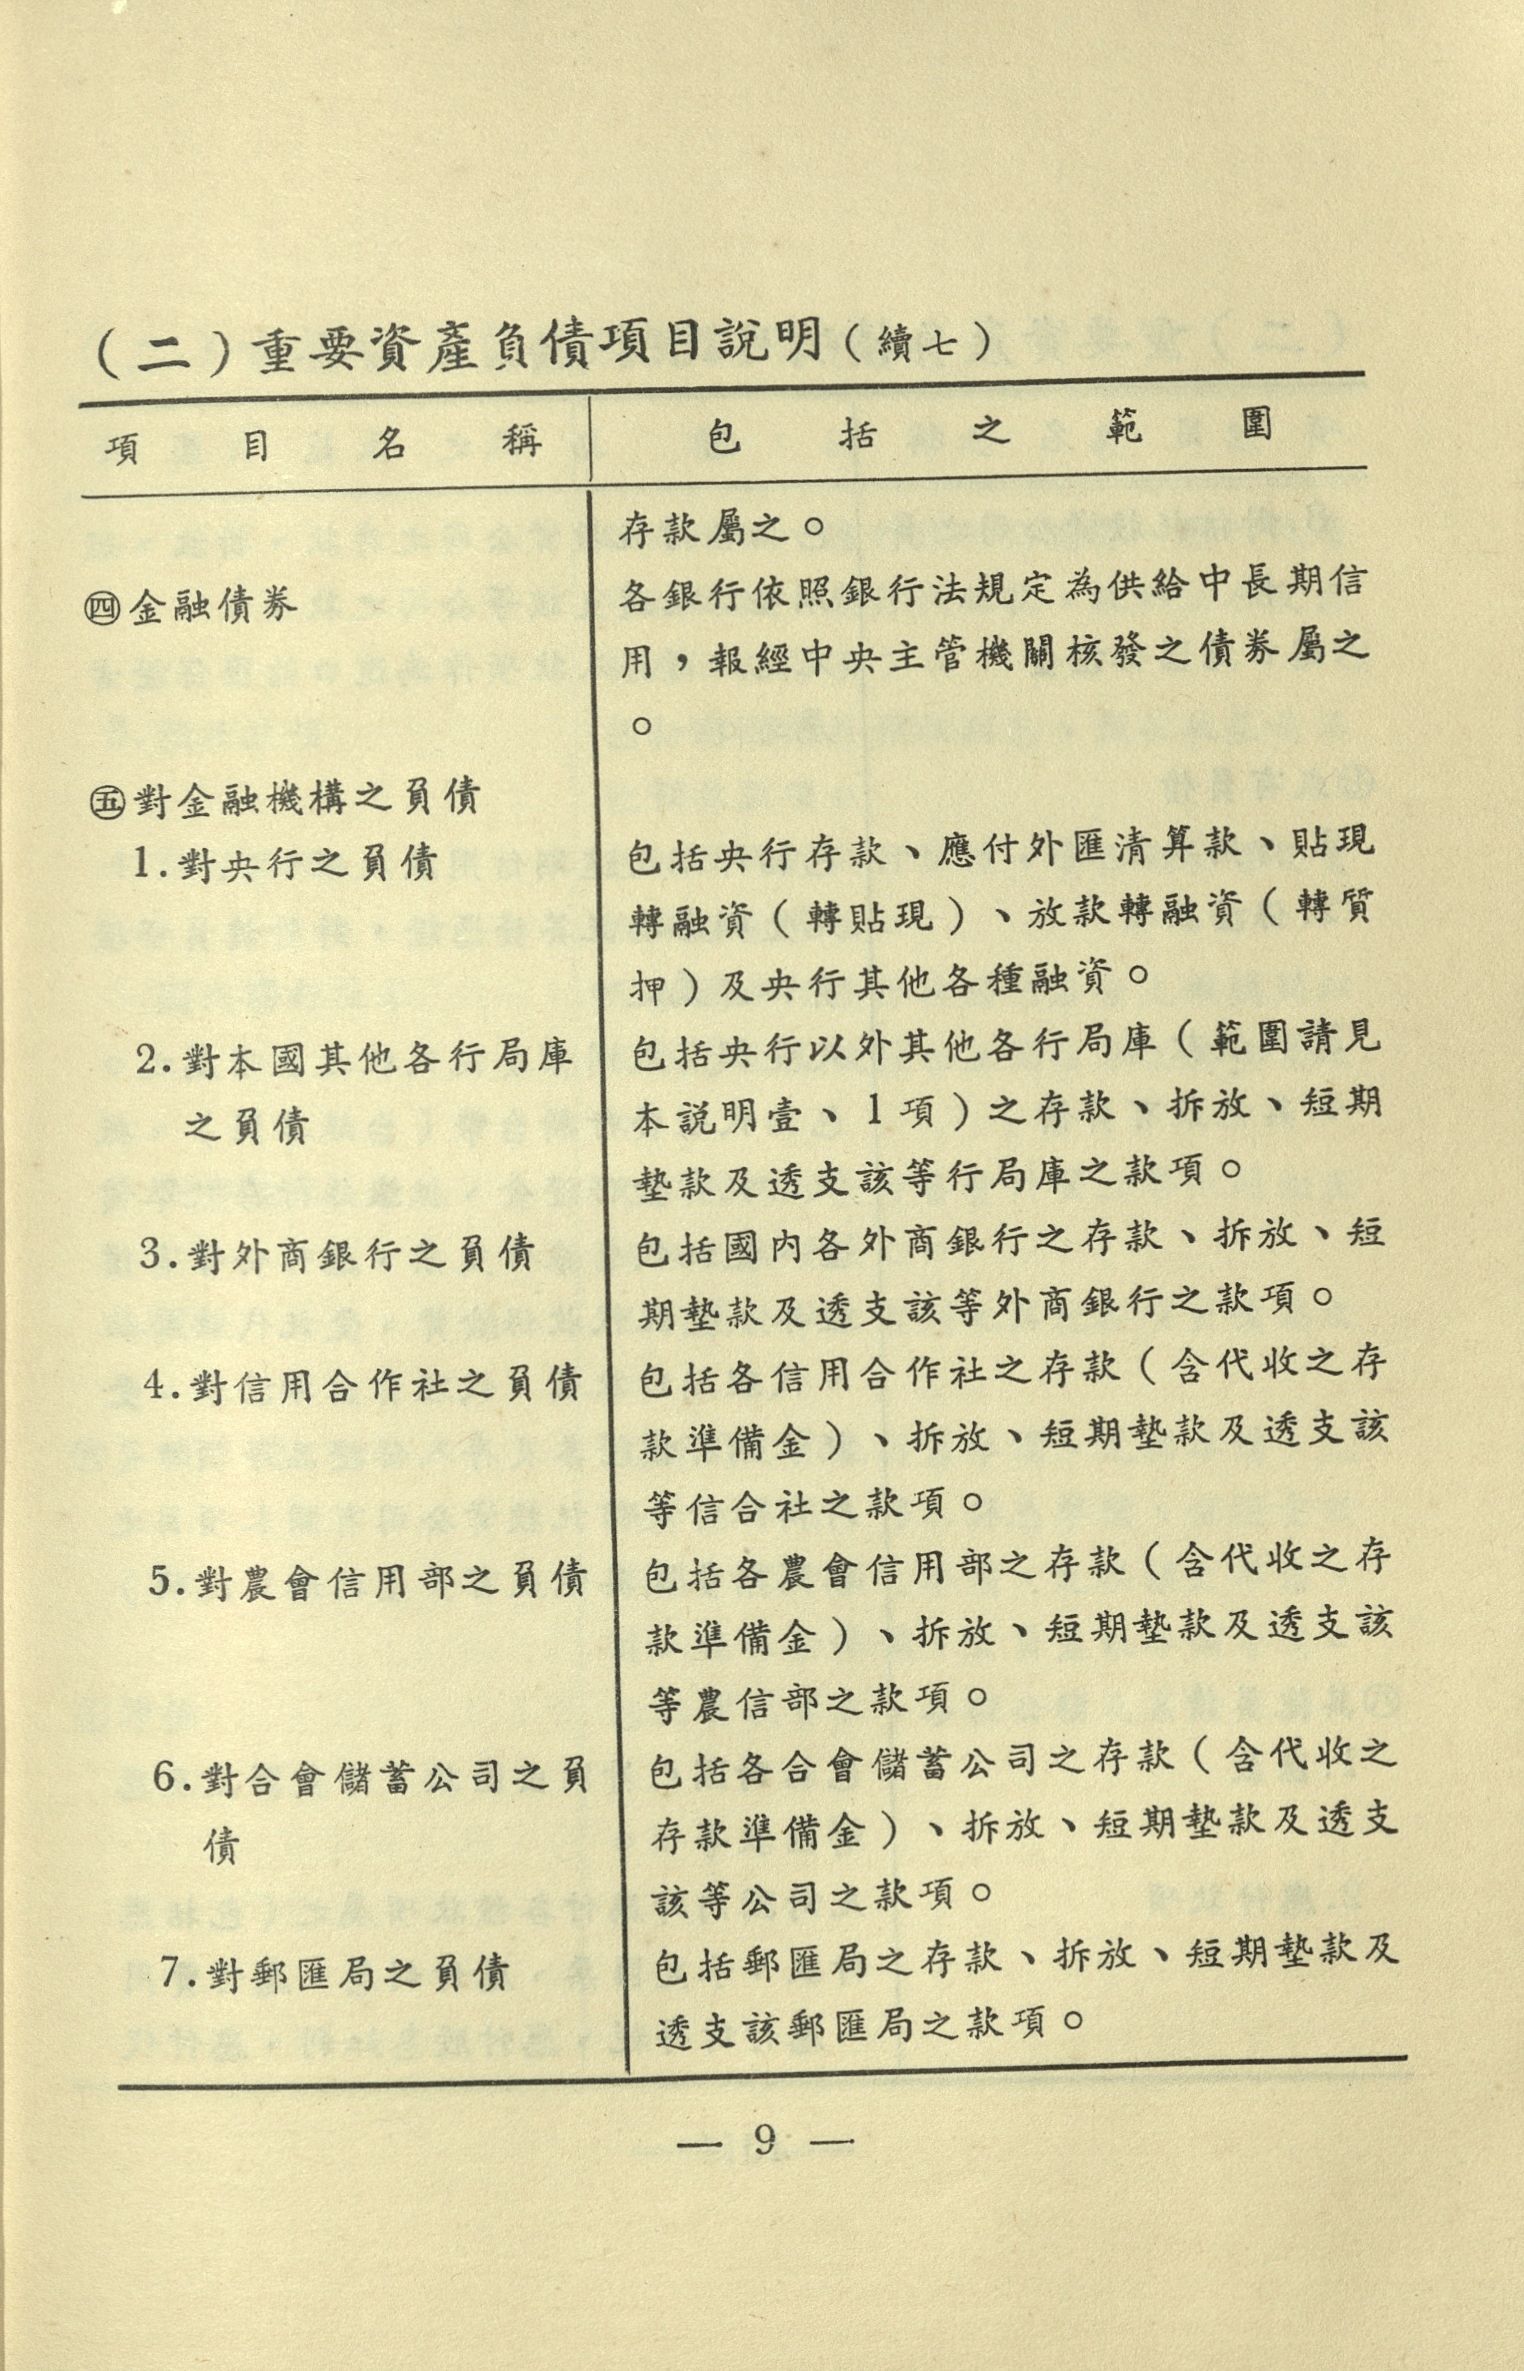 （二）重要資產負債項目說明（續七）
項目名稱 包括之範圍
存款屬之。
㊃金融債券 各銀行依照銀行法規定為供給中長期信
用，報經中央主管機關核發之債券屬之
。
㊄對金融機構之負債
1.對央行之負債 包括央行存款、應付外匯清算款、貼現
轉融資（轉貼現）、放款轉融資（轉質
押）及央行其他各種融資。
2.對本國其他各行局庫 包括央行以外其他各行局庫（範圍請見
之負債 本說明壹、1項）之存款、拆放、短期
墊款及透支該等行局庫之款項。
3.對外商銀行之負債 包括國內各外商銀行之存款、拆放、短
期墊款及透支該等外商銀行之款項。
4.對信用合作社之負債 包括各信用合作社之存款（含代收之存
款準備金）、拆放、短期墊款及透支該
等信合社之款項。
5.對農會信用部之負債 包括各農會信用部之存款（含代收之存
款準備金）、拆放、短期墊款及透支該
等農信部之款項。
6.對合會儲蓄公司之負 包括各合會儲蓄公司之存款（含代收之
債 存款準備金）、拆放、短期墊款及透支
該等公司之款項。
7.對郵匯局之負債 包括郵匯局之存款、拆放、短期墊款及
透支該郵匯局之款項。
— 9 —